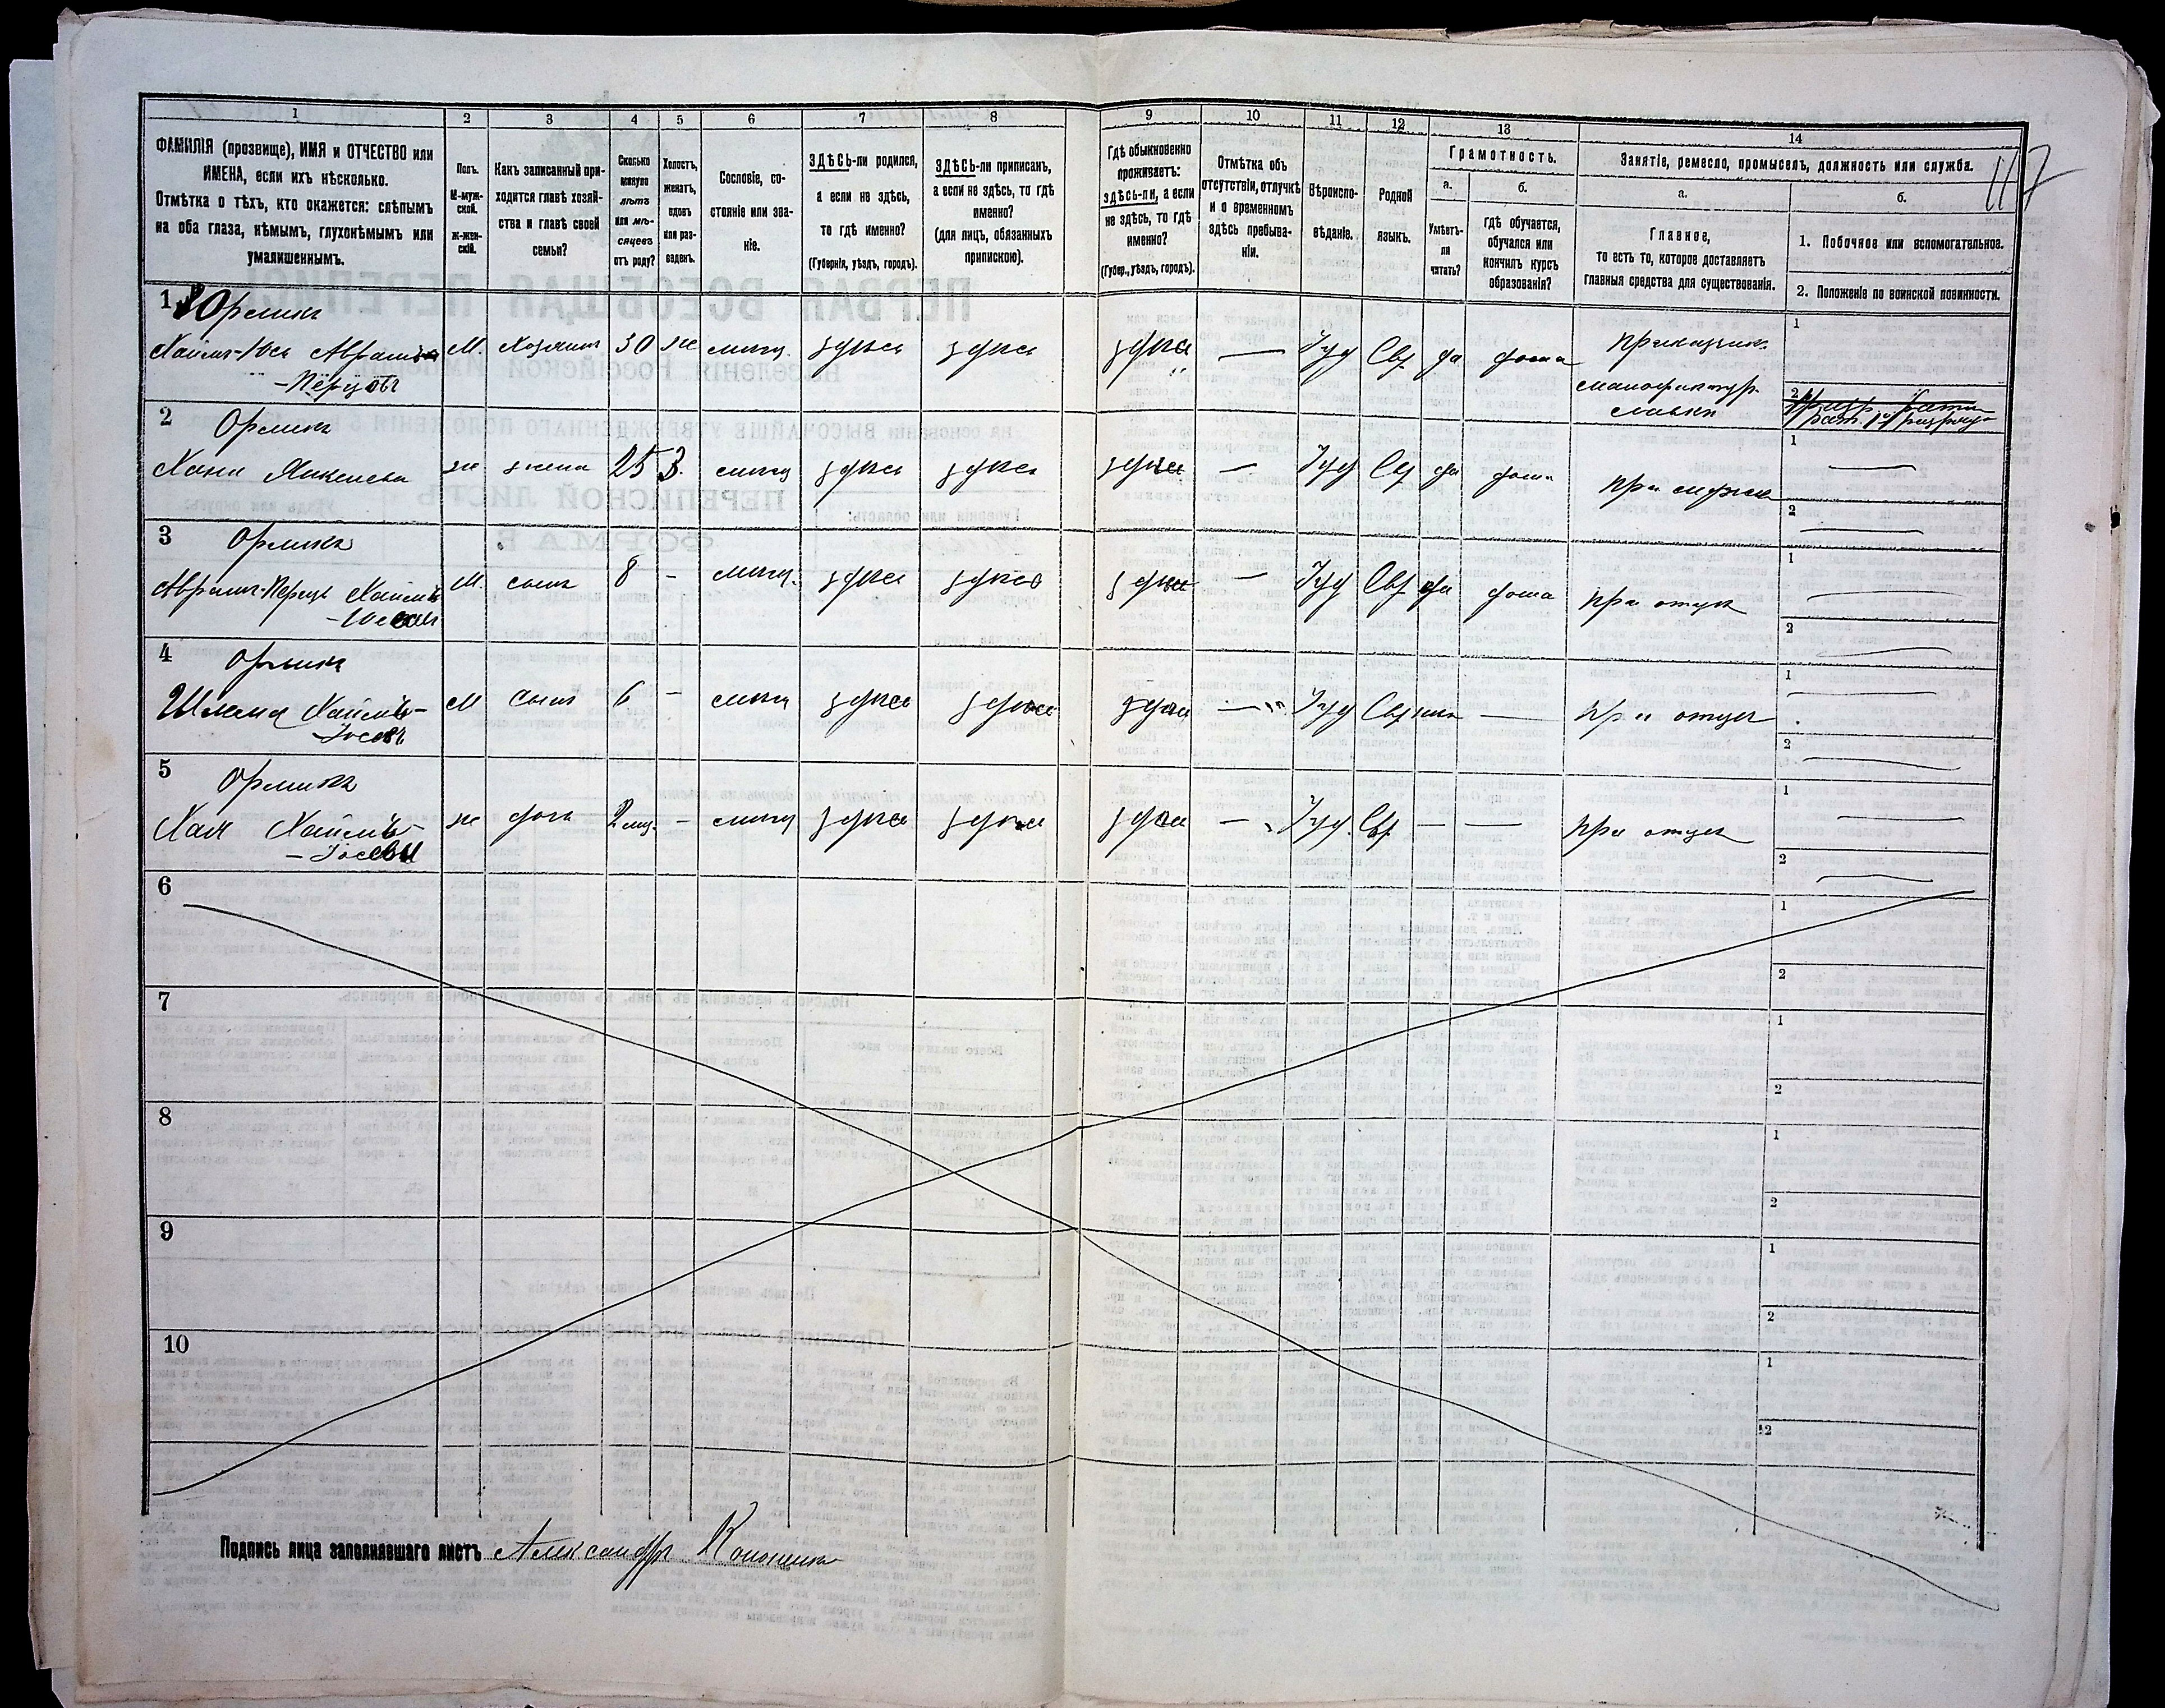 1
2
3
4
5
6
7
8
9
10
11
12
13
14
ФАМИЛІЯ (прозвище), ИМЯ и ОТЧЕСТВО или
ИМЕНА, если ихъ нѣсколько.
Отмѣтка о тѣхъ, кто окажется: слѣпымъ
на оба глаза, нѣмымъ, глухонѣмымъ или
умалишеннымъ.
Полъ.
М-муж-
ской.
Ж-жен-
скій.
Какъ записанный при-
ходится главѣ хозяй-
ства и главѣ своей
семьи?
Сколько
минуло
лѣтъ
или мѣ-
сяцевъ
отъ роду?
Холостъ,
женатъ,
вдовъ
или раз-
веденъ.
Сословіе, со-
стояніе или зва-
ніе.
ЗДѢСЬ-ли родился,
а если не здѣсь,
то гдѣ именно?
(Губернія, уѣздъ, городъ).
ЗДѢСЬ-ли приписанъ,
а если не здѣсь, то гдѣ
именно?
(для лицъ, обязанныхъ
припискою).
Гдѣ обыкновенно
проживаетъ:
здѣсь-ли, а если
не здѣсь, то гдѣ
именно?
(Губер., уѣздъ, городъ).
Отмѣтка объ
отсутствіи, отлучкѣ
и о временномъ
здѣсь пребыва-
ніи.
Вѣроиспо-
вѣданіе.
Родной
языкъ.
Грамотность.
а.
Умѣетъ-
ли
читать?
б.
гдѣ обучается,
обучался или
кончилъ курсъ
образованія?
Занятіе, ремесло, промыселъ, должность или служба.
а.
Главное,
то есть то, которое доставляетъ
главныя средства для существованія.
б.
1. Побочное или вспомогательное.
2. Положеніе по воинской повинности.
117
1 Орликъ
Хаимъ-Іось Аврамъ
-Перцовъ
М. Хозяинъ 30 ж мѣщ. здѣсь здѣсь здѣсь — Іуд Евр да дома
Приказчик
мануфактур.
лавки
1
2
рат. 1й разряд
2 Орликъ
Хана Янкелева ж жена 25 З. мѣщ здѣсь здѣсь здѣсь — Іуд Евр да дома при мужѣ
1
2
3 Орликъ
Аврамъ-Перецъ Хаимъ
-Іосевъ
М. сынъ 8 - мѣщ. здѣсь здѣсь здѣсь — Іуд Евр да дома при отцѣ
1
2
4 Орликъ
Шлема Хаимъ-
-Іосевъ
М сынъ 6 - мѣщ здѣсь здѣсь здѣсь — Іуд Евр нѣт — при отцѣ
1
2
5 Орликъ
Хая Хаимъ-
-Іосева
ж дочь 2 мѣс. - мѣщ здѣсь здѣсь здѣсь — Іуд. Евр. — — при отцѣ
1
2
6
1
2
7
1
2
8
1
2
9
1
2
10
1
2
Подпись лица заполнявшаго листъ Александръ